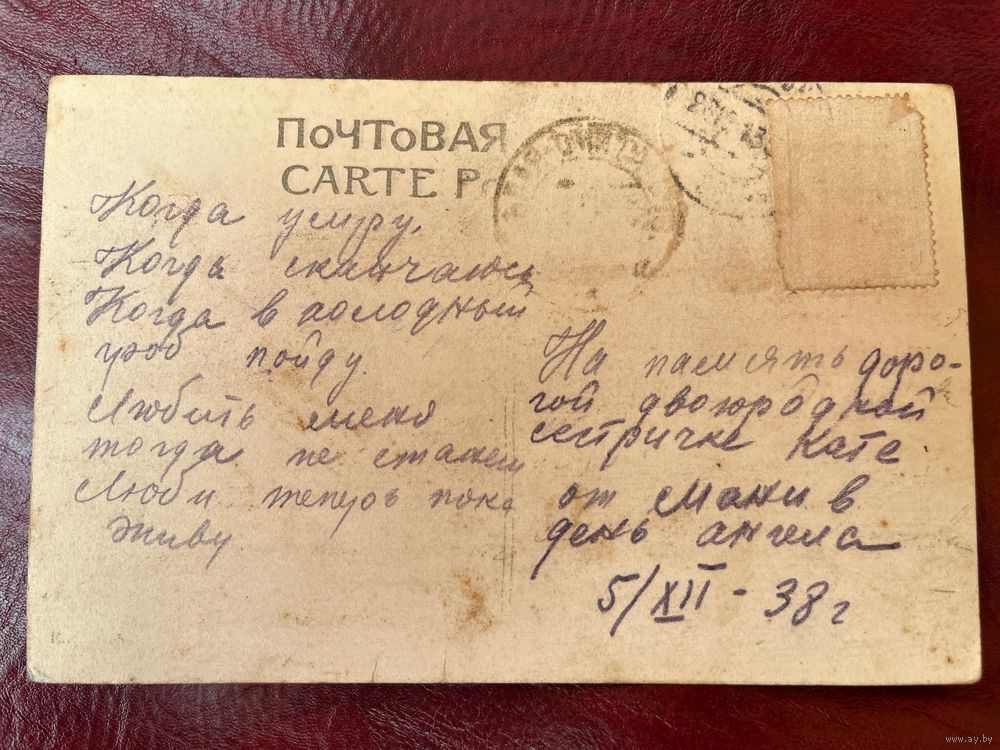 ПОЧТОВАЯ
CARTE P
Когда умру,
Когда скончаюсь
Когда в холодный
гроб пойду
Любить меня
тогда не станеш
Люби теперь пока
живу
На память доро-
гой двоюродной
сестричке Кате.
от Мани в
день ангела
5/XII - 38 г
www.ay.by